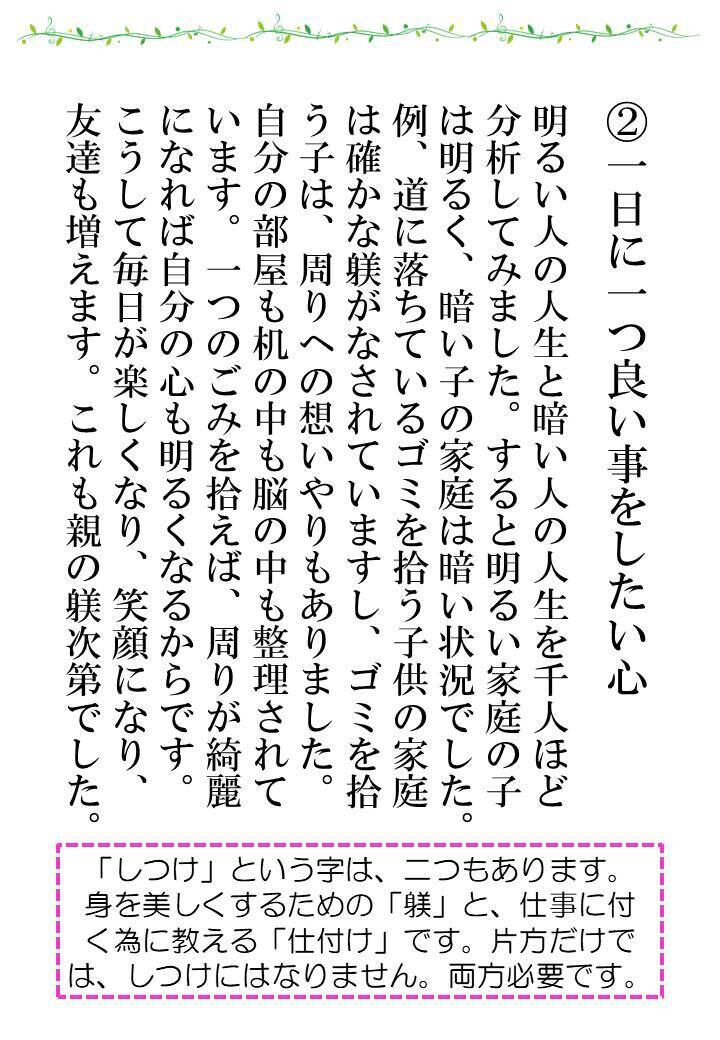 ②一日に一つ良い事をしたい心
明るい人の人生と暗い人の人生を千人ほど
分析してみました。すると明るい家庭の子
は明るく、暗い子の家庭は暗い状況でした。
例、道に落ちているゴミを拾う子供の家庭
は確かな躾がなされていますし、ゴミを拾
う子は、周りへの想いやりもありました。
自分の部屋も机の中も脳の中も整理されて
います。一つのごみを拾えば、周りが綺麗
になれば自分の心も明るくなるからです。
こうして毎日が楽しくなり、笑顔になり、
友達も増えます。これも親の躾次第でした。
「しつけ」という字は、二つもあります。
身を美しくするための「躾」と、仕事に付
く為に教える「仕付け」です。片方だけで
は、しつけにはなりません。両方必要です。